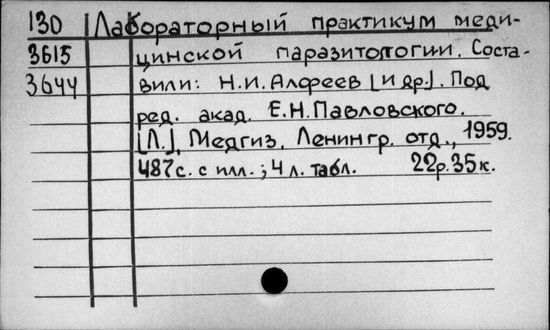 130 Лабораторный практикум меди-
3615 цинской паразитологии. Соста-
3644 вили: Н.И. Алфеев [и др.]. Под
ред. акад. Е.Н. Павловского.
[Л.], Медгиз, Ленингр. отд., 1959.
487с. с илл.; 4 л. табл. 22р. 35к.